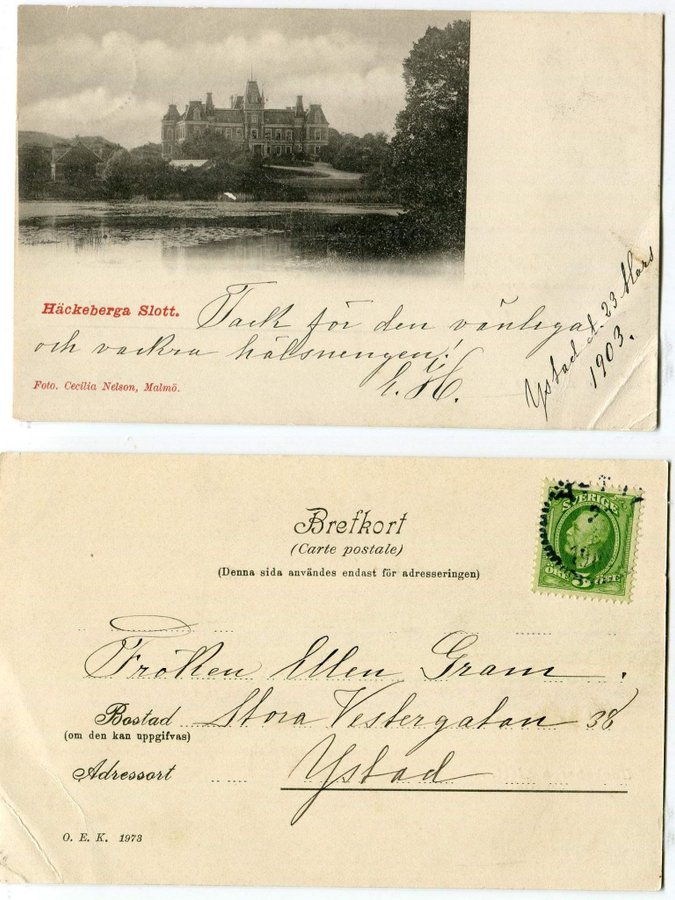 Häckeberga Slott.
Tack för den vänliga
och vackra hälsningen!
E. H.
Ystad d. 23 Mars
1903.
Foto. Cecilia Nelson, Malmö.
SVERIGE
5 ÖRE
Brefkort
(Carte postale)
(Denna sida användes endast för adresseringen)
Fröken Ellen Gram.
Bostad Stora Vestergatan 38
(om den kan uppgifvas)
Adressort Ystad
O. E. K. 1973